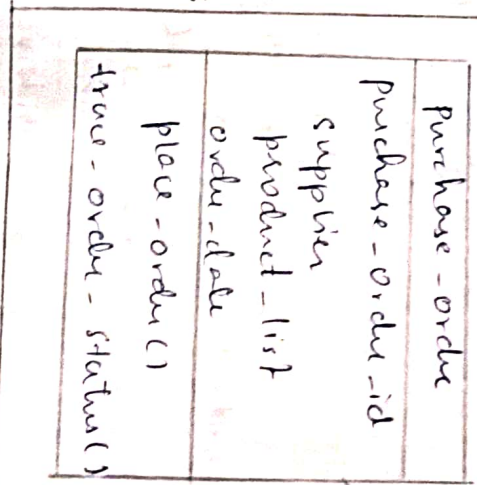 purchase-order
purchase-order-id
supplier
product-list
order-date
place-order()
trace-order-status()